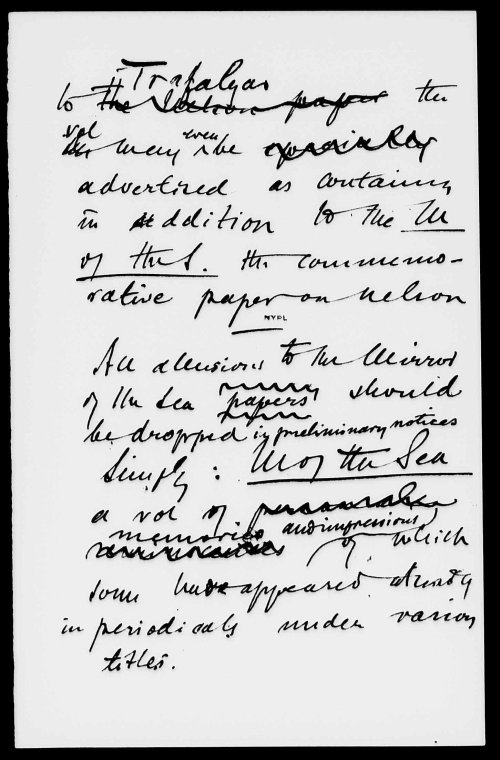 Trafalgar
to the Nelson paper the
vol may even be specially
advertised as containing
in addition to the M
of the S. the commemo-
rative paper on Nelson
NYPL
All allusions to the Mirror
of the Sea papers should
be dropped in preliminary notices
Simply: M of the Sea
a vol of personal
memories and impressions
of which
some have appeared already
in periodicals under various
titles.